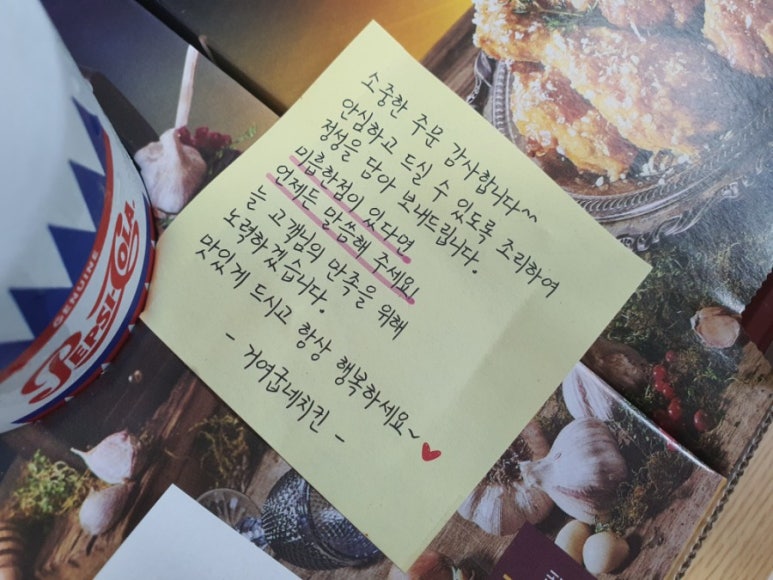 소중한 주문 감사합니다~~
안심하고 드실 수 있도록 조리하여
정성을 담아 보내드립니다.
미흡한점이 있다면
언제든 말씀해 주세요!
늘 고객님의 만족을 위해
노력하겠습니다.
맛있게 드시고 항상 행복하세요~♥
- 거여굽네치킨 -
GENUINE
PEPSI-COLA